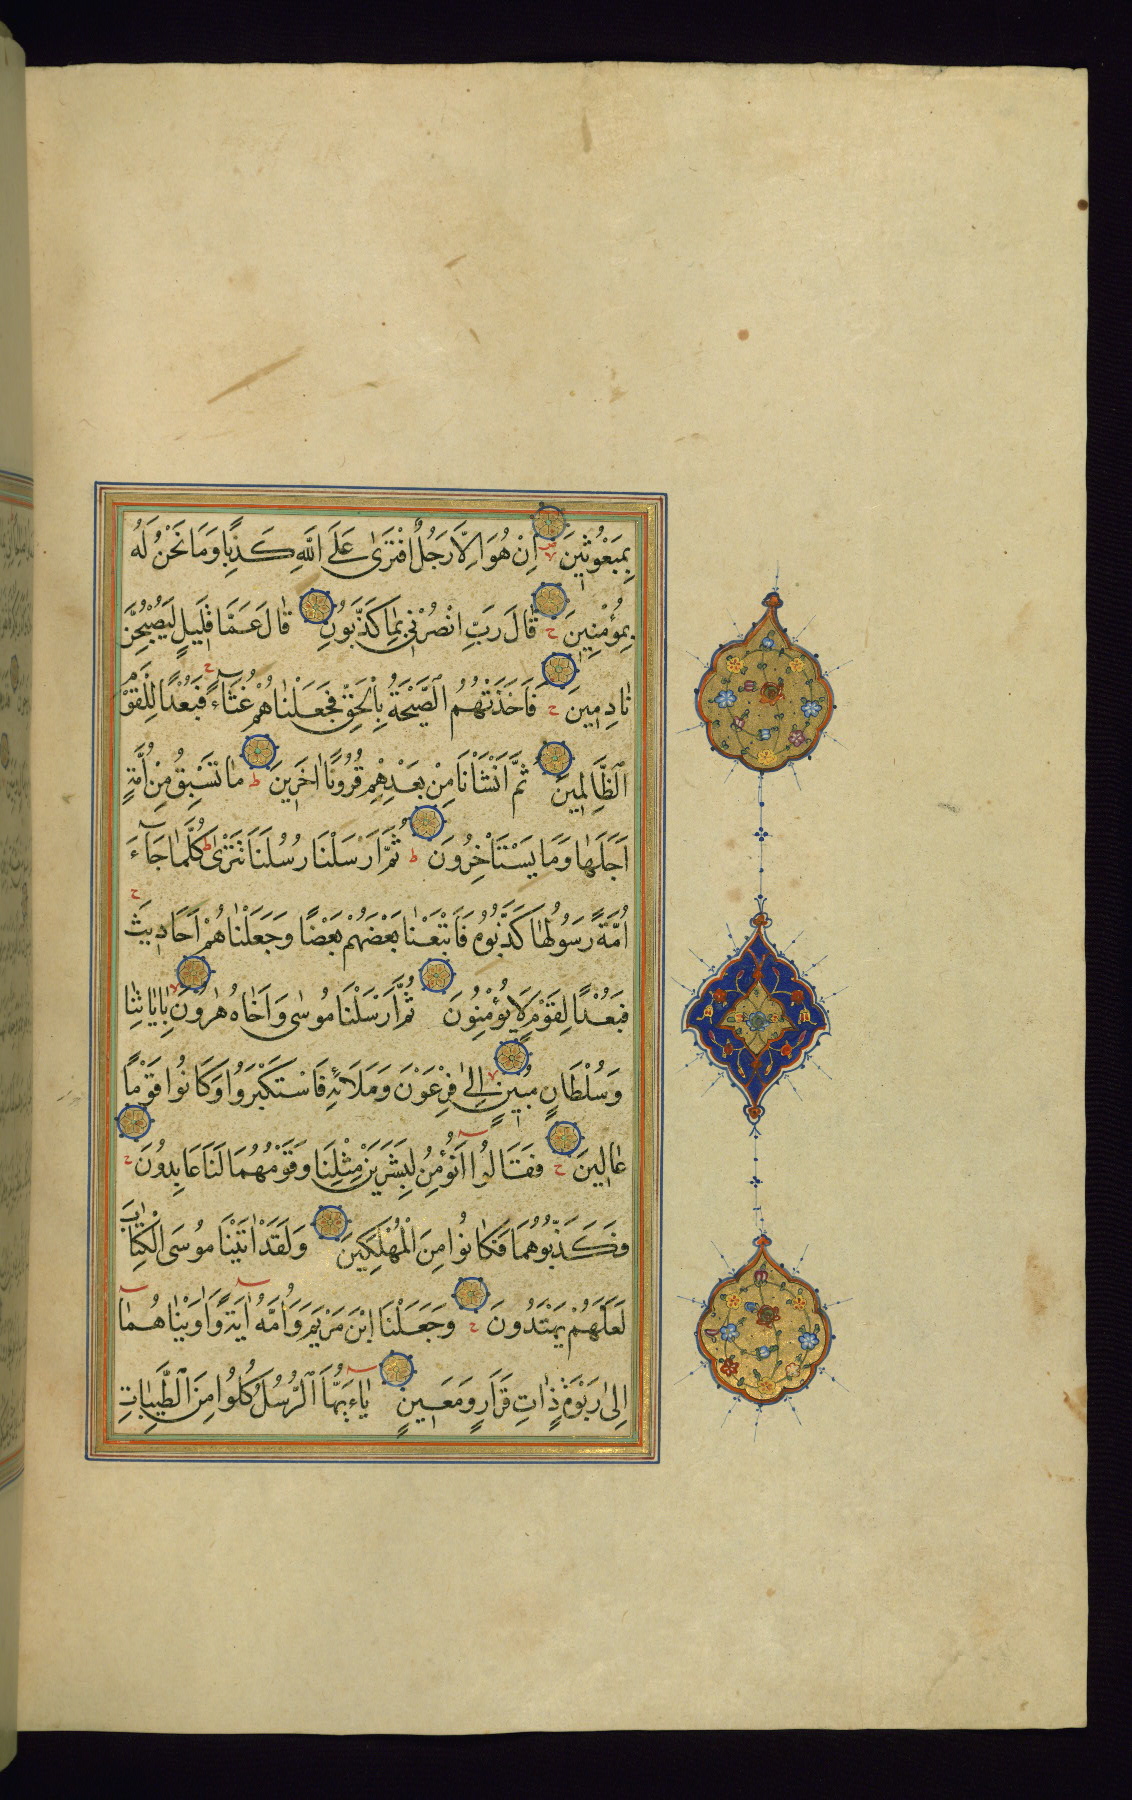 بِمَبْعُوثِينَ اِنْ هُوَ اِلَّا رَجُلٌ افْتَرٰى عَلَى اللّٰهِ كَذِبًا وَمَا نَحْنُ لَهُ
بِمُؤْمِنِينَ قَالَ رَبِّ انْصُرْنِي بِمَا كَذَّبُونِ قَالَ عَمَّا قَلِيلٍ لَيُصْبِحُنَّ
نَادِمِينَ فَاَخَذَتْهُمُ الصَّيْحَةُ بِالْحَقِّ فَجَعَلْنَاهُمْ غُثَاءً فَبُعْدًا لِلْقَوْمِ
الظَّالِمِينَ ثُمَّ اَنْشَاْنَا مِنْ بَعْدِهِمْ قُرُونًا اٰخَرِينَ مَا تَسْبِقُ مِنْ اُمَّةٍ
اَجَلَهَا وَمَا يَسْتَاْخِرُونَ ثُمَّ اَرْسَلْنَا رُسُلَنَا تَتْرٰى كُلَّمَا جَاءَ
اُمَّةً رَسُولُهَا كَذَّبُوهُ فَاَتْبَعْنَا بَعْضَهُمْ بَعْضًا وَجَعَلْنَاهُمْ اَحَادِيثَ
فَبُعْدًا لِقَوْمٍ لَا يُؤْمِنُونَ ثُمَّ اَرْسَلْنَا مُوسٰى وَاَخَاهُ هٰرُونَ بِاٰيَاتِنَا
وَسُلْطَانٍ مُبِينٍ اِلٰى فِرْعَوْنَ وَمَلَائِهِ فَاسْتَكْبَرُوا وَكَانُوا قَوْمًا
عَالِينَ فَقَالُوا اَنُؤْمِنُ لِبَشَرَيْنِ مِثْلِنَا وَقَوْمُهُمَا لَنَا عَابِدُونَ
فَكَذَّبُوهُمَا فَكَانُوا مِنَ الْمُهْلَكِينَ وَلَقَدْ اٰتَيْنَا مُوسَى الْكِتَابَ
لَعَلَّهُمْ يَهْتَدُونَ وَجَعَلْنَا ابْنَ مَرْيَمَ وَاُمَّهُ اٰيَةً وَاٰوَيْنَاهُمَا
اِلٰى رَبْوَةٍ ذَاتِ قَرَارٍ وَمَعِينٍ يَاءَيُّهَا الرُّسُلُ كُلُوا مِنَ الطَّيِّبَاتِ